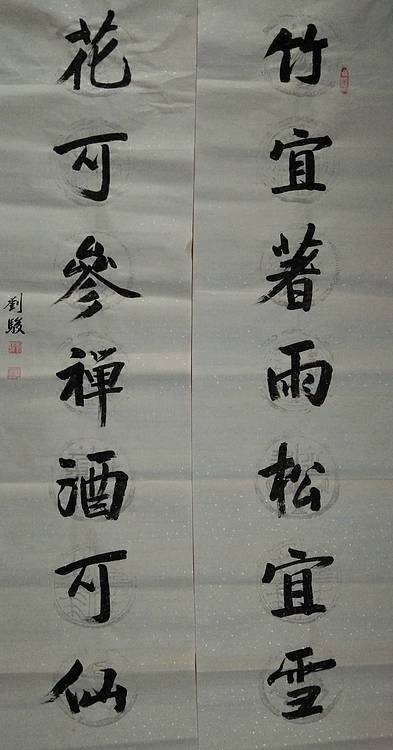 竹宜著雨松宜雪
花可參禅酒可仙
劉駿